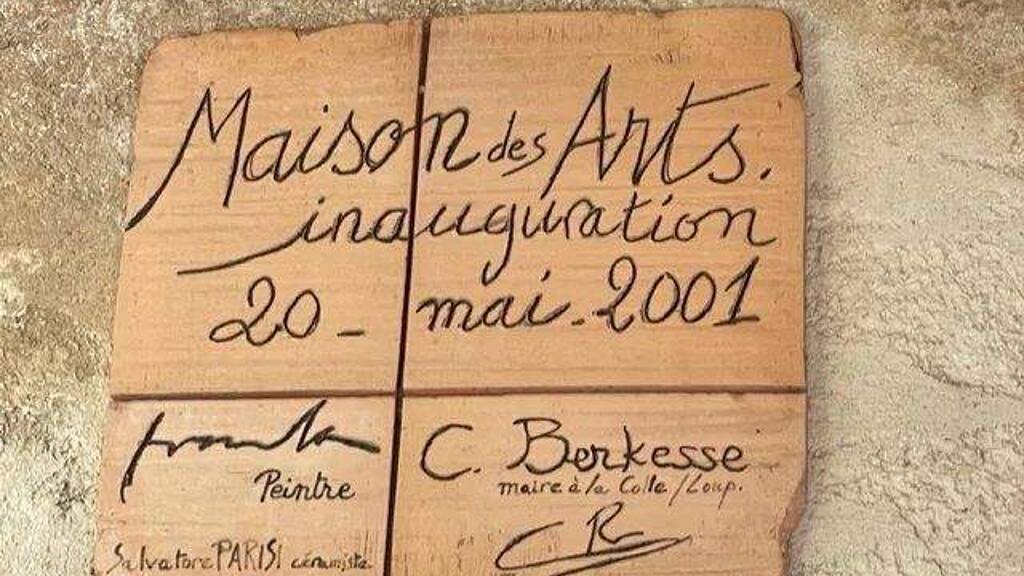 Maison des Arts.
inauguration
20 - mai - 2001
Peintre
C. Berkesse
maire à la Colle/Loup.
Salvatore PARISI céramiste